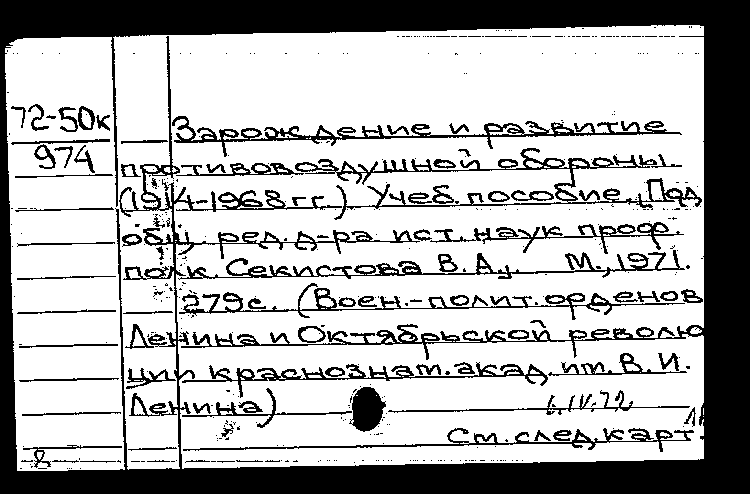 72-50к
974
Зарождение и развитие
противовоздушной обороны.
(1914-1968 гг.) Учеб. пособие. Под
общ. ред. д-ра ист. наук проф.
полк. Секистова В. А. М., 1971.
279с. (Воен.-полит. орденов
Ленина и Октябрьской револю
ции краснознам. акад. им. В. И.
Ленина)
6.IV.72
См. след. карт.
8